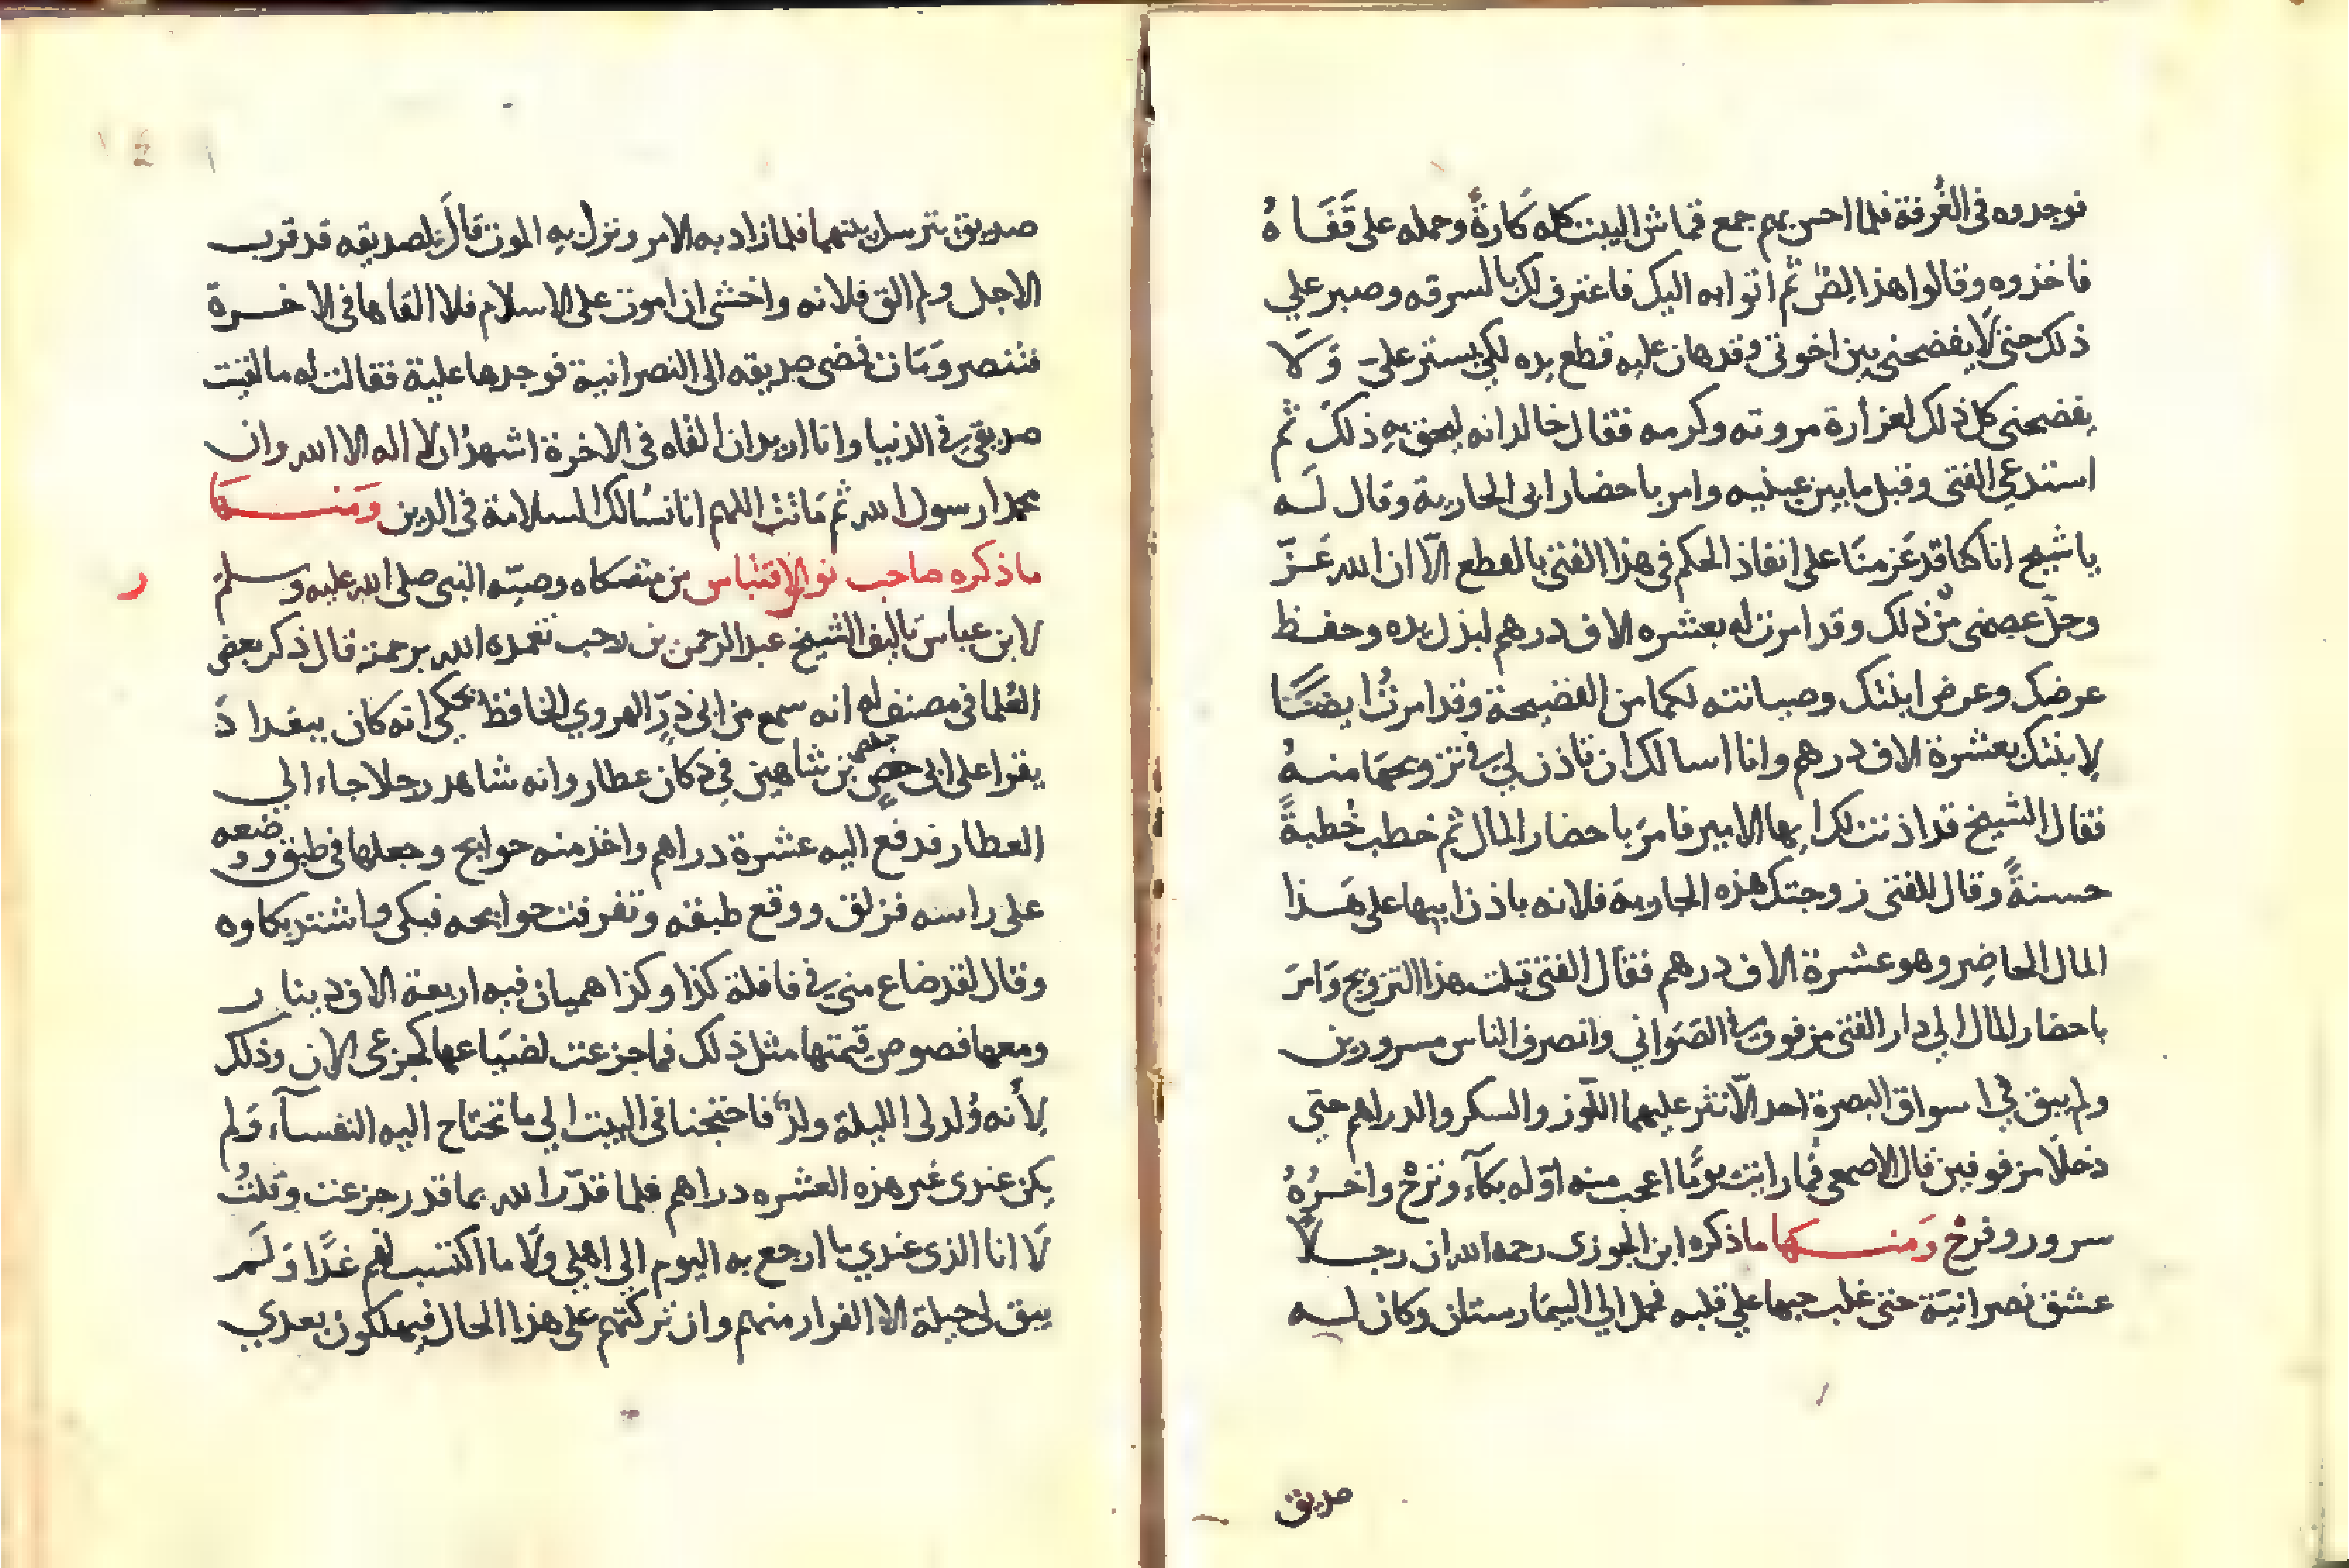 فوجدوه فى الغُرفة فلما احس بهم جمع قماش البيت كله كَارةً وحمله على قَفَاهُ
فاخذوه وقالوا هذا لِصٌ ثم اتوا به اليك فاعترف لك بالسرقه وصبر علي
ذلك حتى لَا يفضحنى بين اخوتى وقد هان عليه قطع يده لكى يستر علىّ وَلَا
يفضحنى كل ذلك لغزارة مروته وكرمه فقال خالد انه ليحق بهِ ذلك ثم
استدعي الفتى وقبل ما بين عينيه وامر باحضار ابى الجارية وقال لَه
يا شيخ انا كنا قد عَزمنَا على انفاذ الحكم فى هذا الفتى بالقطع الّا ان الله عَزّ
وجلّ عصمنى مّن ذلك وقد امرت له بعشره الاف درهم لبذل يده وحفظ
عرضك وعرض ابنتك وصيانته لكما من الفضيحة وقد امرتُ ايضًا
لِابنتك بعشرة الاف درهم وانا اسالك ان تاذن لي فى تزويجها منهُ
فقال الشيخ قد اذنت لك ايها الامير فامرَ باحضار المال ثم خطب خُطبةً
حسنةً وقال للفتى زوجتك هذه الجارية فلانه باذن ابيها على هَذا
المال الحاضِر وهو عشرة الاف درهم فقال الفتى قبلت هذا التزويج وَامرَ
باحضار المال الي دار الفتى مزفوفا فى الصَوَاني وانصرف الناس مسرورين
ولم يبق في اسواق البصرة احد الّا نثر عليهما اللّوز والسكر والدراهم حتى
دخلَا مزفوفين قال الاصمعى فما رايت يومًا اعجب منه اوّله بكآء وترحٌ واخرُهُ
سرور وفرحٌ وَمنها ما ذكره ابن الجوزى رحمه الله ان رجلًا
عشق نصرانيّة حتى غلب حبها علي قلبه فحمل الي البيمَارستان وكان له
صديق
صديق يترسل بينهما فلما زاد به الامر ونزل بهِ الموت قالَ لصديقه قد قرب
الاجل ولم الق فلانه واخشى ان اموت على الاسلام فلا القاها فى الاخرة
فتنصر وَمَات فمضى صديقه الى النصرانية فوجدها عليلة فقالت له ما لقيت
صديقى فى الدنيا وانا اريد ان القاه فى الاخرة اشهدُ ان لا اله الا الله وان
محمدا رسول الله ثم مَاتت اللهم انا نسُالك السلامة فى الدين وَمنها
ما ذكره صاحب نور الاقتباس من مشكاه وصيّه النبى صلى الله عليه وسلم
لابن عباس تاليف الشيخ عبد الرحمن بن رجب تغمده الله برحمته قال ذكر بعض
العُلما فى مصنف له انه سمع من ابى ذرّ الهروي الحافظ يحكى انه كان ببغداد
يقرا على ابى حفص بن شاهين في دكان عطار وانه شاهد رجلا جاء الي
العطار فدفع اليه عشرة دراهم واخذ منه حوايج وجعلها فى طبق ووضعه
على راسه فزلق ووقع طبقه وتفرقت حوايجه فبكى واشتد بكاوه
وقال لقد ضاع منى فى قافلة كذا وكذا هميان فيه اربعة الاف دينار
ومعها فصوص قيمتها مثل ذلك فما جزعت لضيَاعها كجزعى الان وذلك
لأنه وُلد لى الليلة ولدٌ فاحتجنا فى البيت الي ما تحتاج اليه النفسآء وَلم
يكن عندى غير هذه العشره دراهم فلما قدّر الله بما قدر جزعت وقلتُ
لَا انا الذى عندي ما ارجع به اليوم الي اهلي ولَا ما اكتسب لهم غدًا وَلَم
يبق لى حيلة الا الفرار منهم وان تركتهم على هذا الحال فيهلكون بعدي